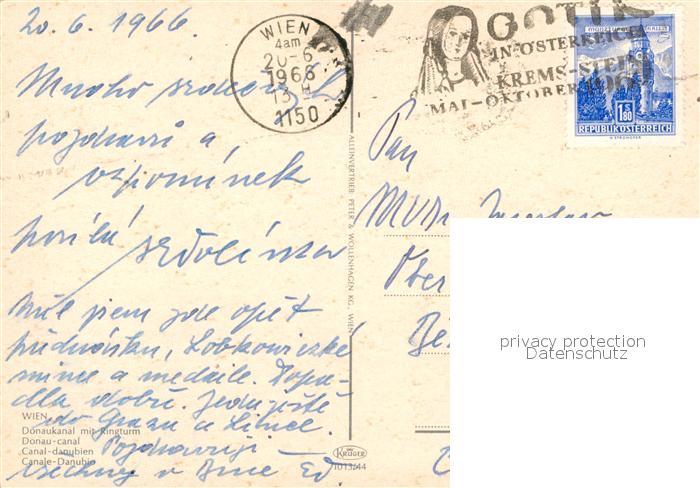 20. 6. 1966.
WIEN
4am
20-6
1966
13 H
1150
GOTIK
IN ÖSTERREICH
KREMS-STEIN
MAI-OKTOBER
1.80
REPUBLIK ÖSTERREICH
Mnoho srdečných
pozdravů a
vzpomínek
posílá
Měl jsem zde opět
přednášku, Lobkowiczké
mince a medaile. Dopa-
dla dobře. Jedu ještě
do Grazu a Lince.
Pozdravuji
všechny v Brně
Pan
MUDr. Jaroslav
ALLEINVERTRIEB: PETER & WOLLENHAGEN KG, WIEN
WIEN
Donaukanal mit Ringturm
Donau-canal
Canal-danubien
Canale-Danubio
KRÜGER
1013/44
privacy protection
Datenschutz